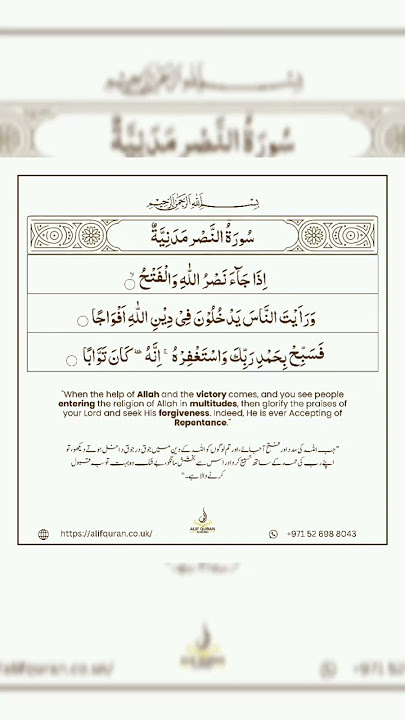 بِسْمِ اللهِ الرَّحْمٰنِ الرَّحِيْمِ
سُورَةُ النَّصْرِ مَدَنِيَّةٌ
بِسْمِ اللهِ الرَّحْمٰنِ الرَّحِيْمِ
سُورَةُ النَّصْرِ مَدَنِيَّةٌ
اِذَا جَآءَ نَصْرُ اللّٰهِ وَالْفَتْحُ ۙ
وَرَاَيْتَ النَّاسَ يَدْخُلُوْنَ فِيْ دِيْنِ اللّٰهِ اَفْوَاجًا
فَسَبِّحْ بِحَمْدِ رَبِّكَ وَاسْتَغْفِرْهُ ؕ اِنَّهٗ كَانَ تَوَّابًا
"When the help of Allah and the victory comes, and you see people
entering the religion of Allah in multitudes, then glorify the praises of
your Lord and seek His forgiveness. Indeed, He is ever Accepting of
Repentance."
"جب اللہ کی مدد اور فتح آ جائے، اور تم لوگوں کو اللہ کے دین میں جوق در جوق داخل ہوتے دیکھو، تو
اپنے رب کی حمد کے ساتھ تسبیح کرو اور اس سے بخشش مانگو، بے شک وہ بہت توبہ قبول
کرنے والا ہے۔"
ALIF QURAN
https://alifquran.co.uk/
+971 52 698 8043
alifquran.co.uk/
+971 52